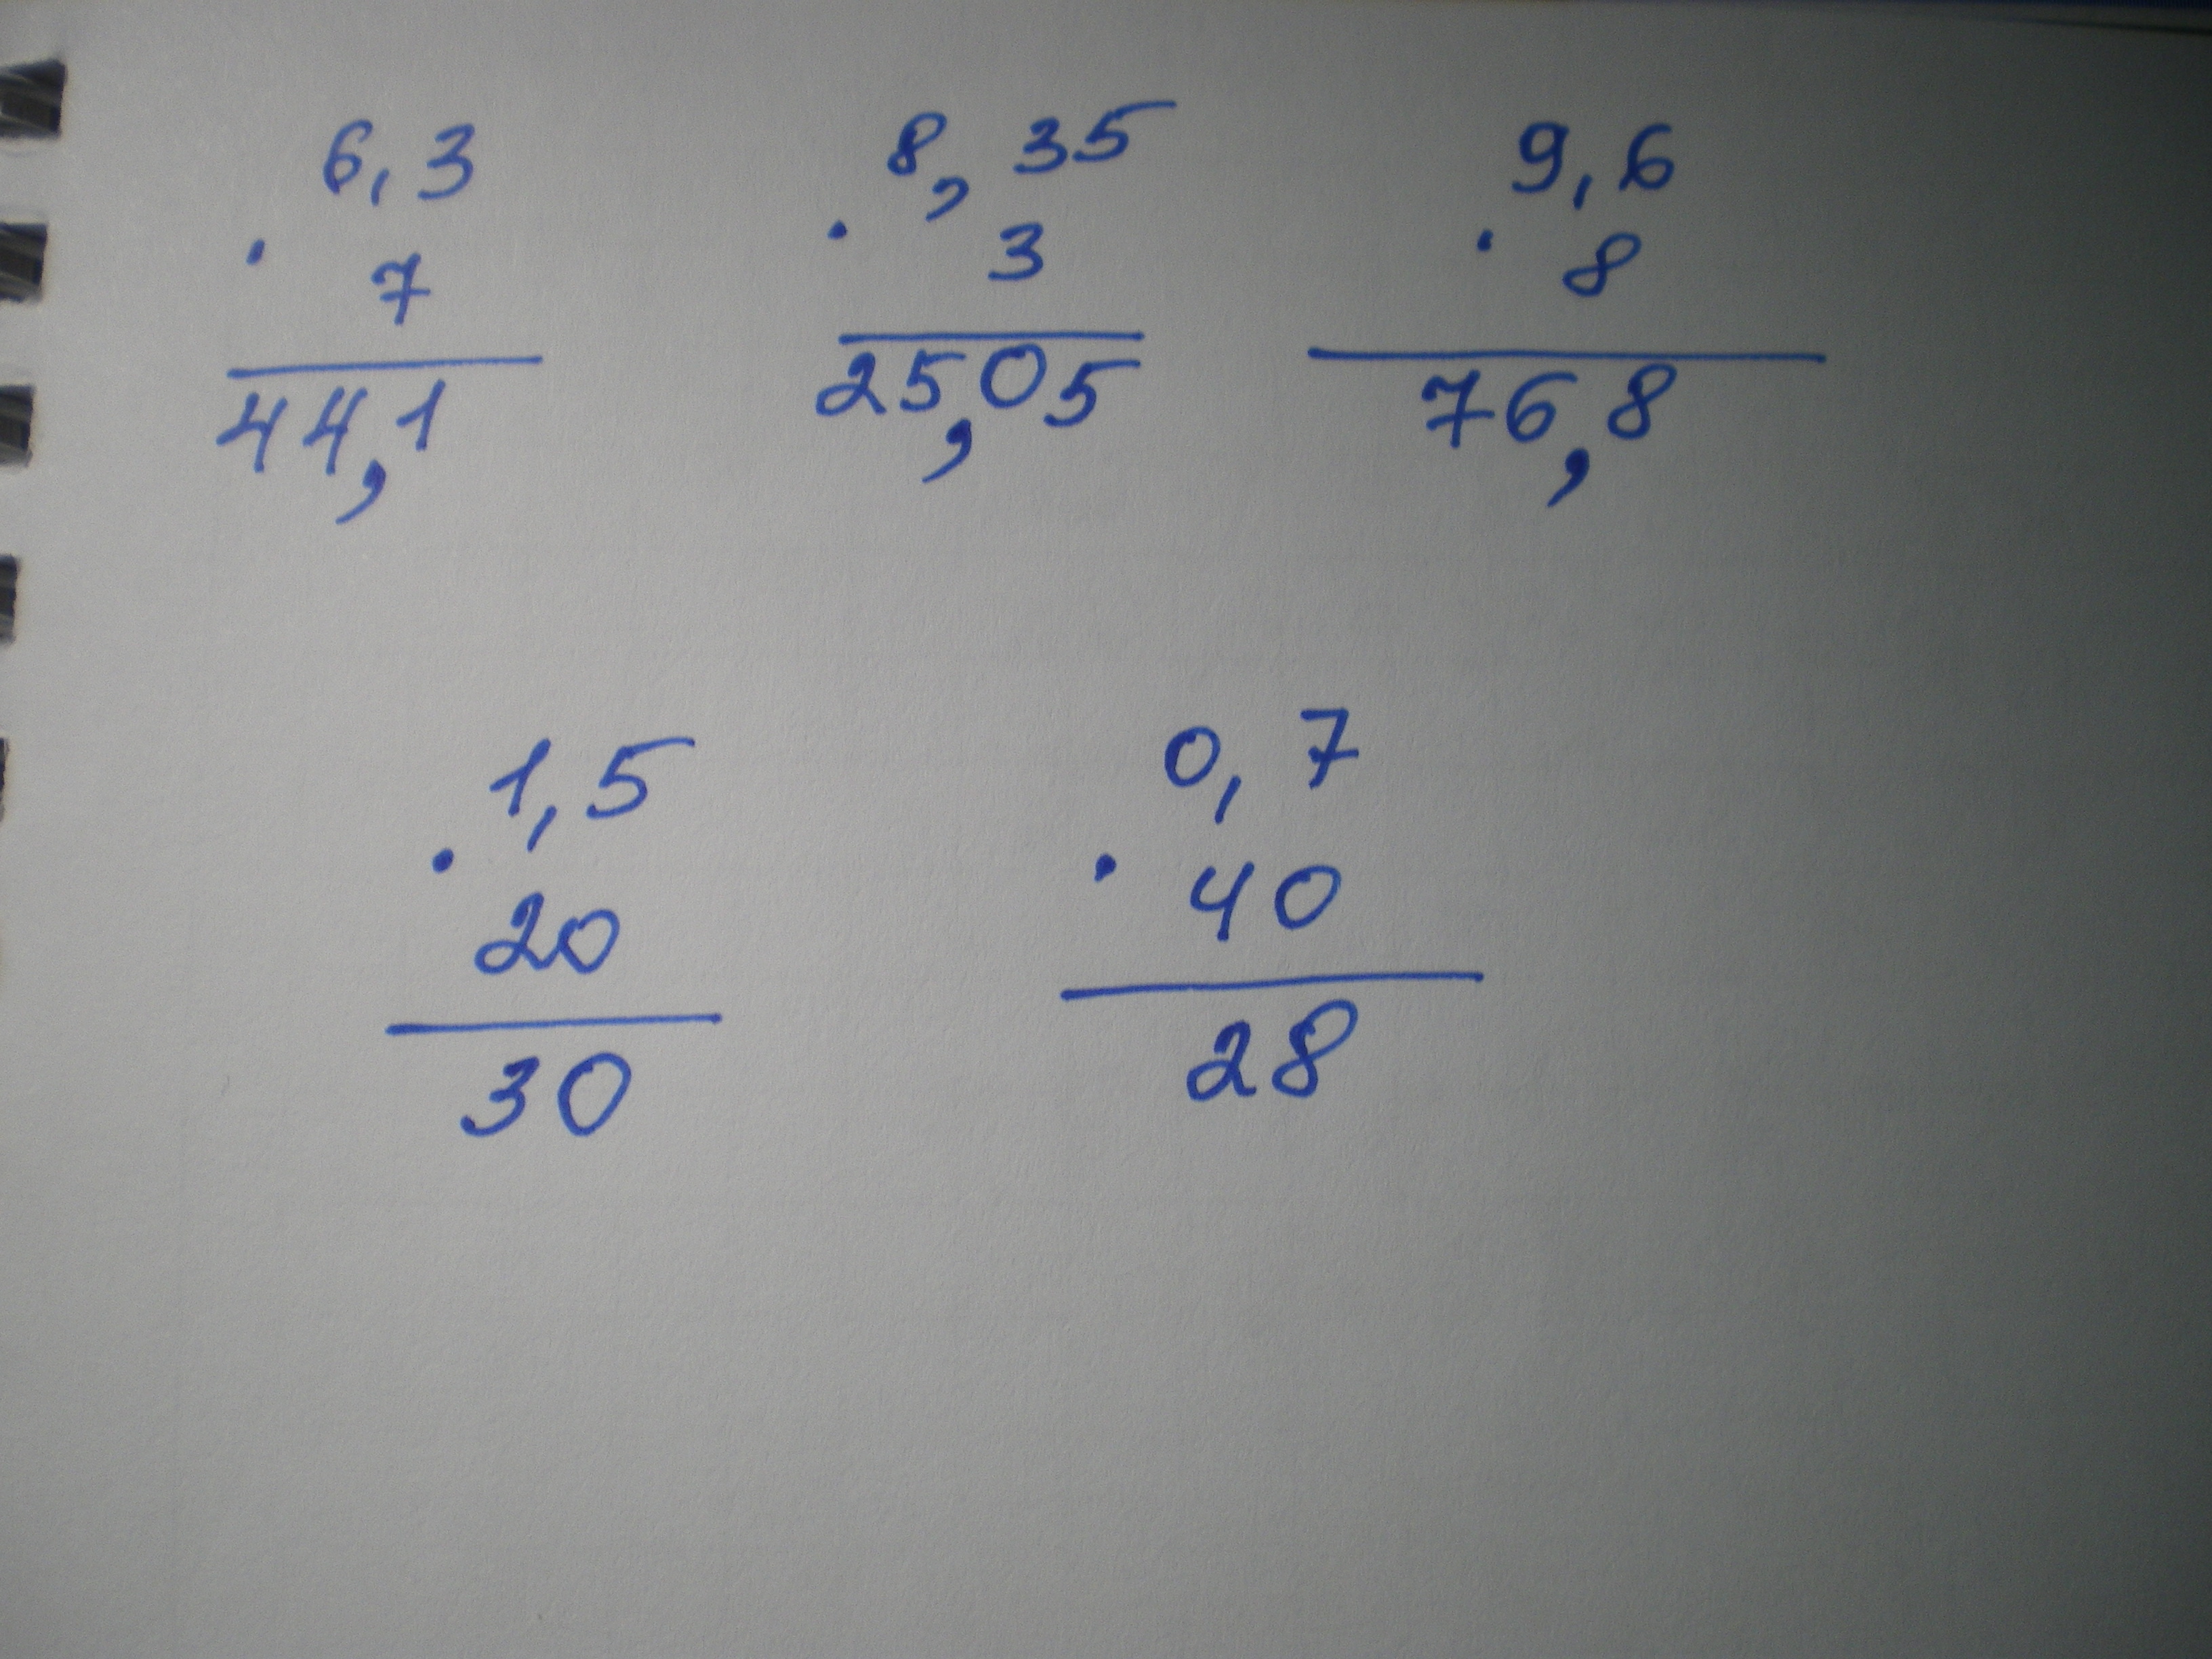 6,3
· 7
44,1
8,35
· 3
25,05
9,6
· 8
76,8
1,5
· 20
30
0,7
· 40
28